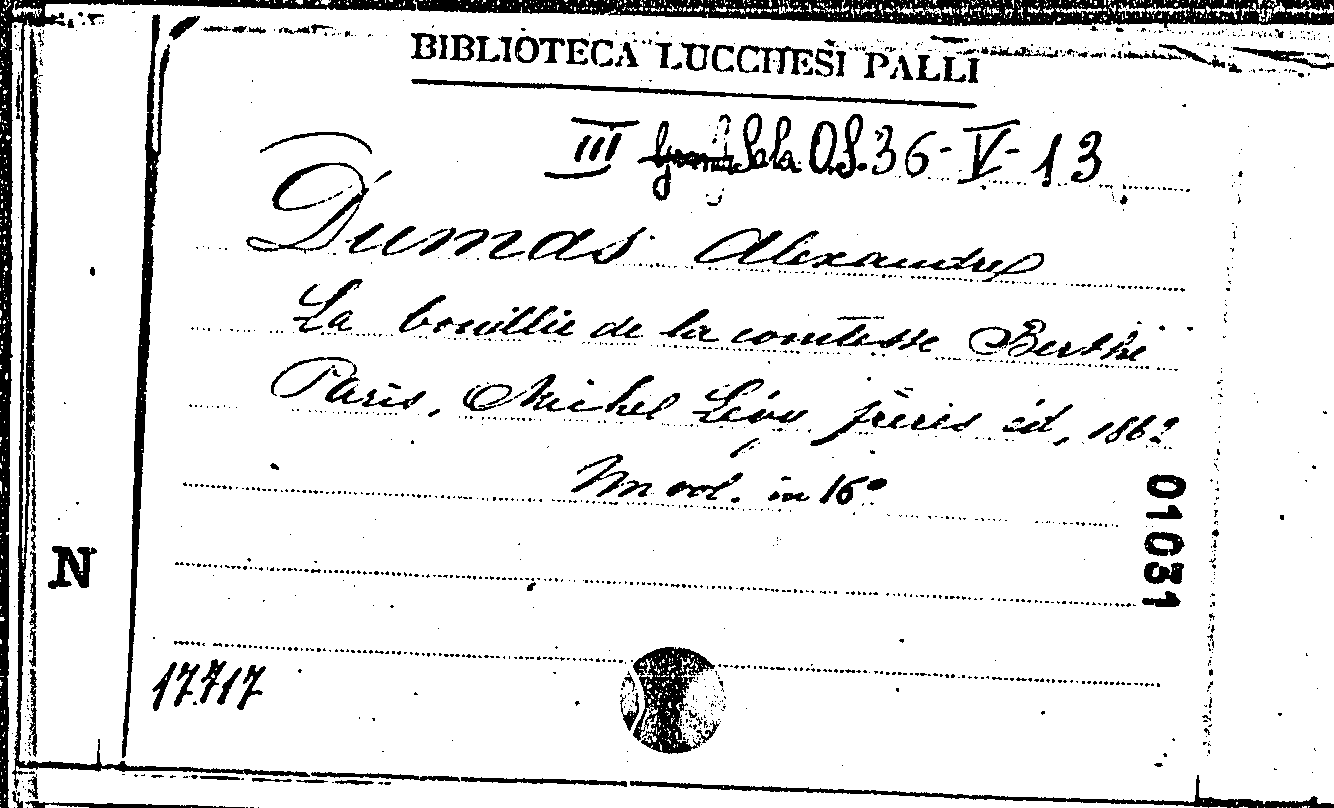 BIBLIOTECA LUCCHESI PALLI
III Sala O.S. 36-V-13
Dumas Alexandre
La bouillie de la comtesse Berthe
Paris, Michel Lévy frères éd, 1862
Un vol. in 16°
01031
N
17717